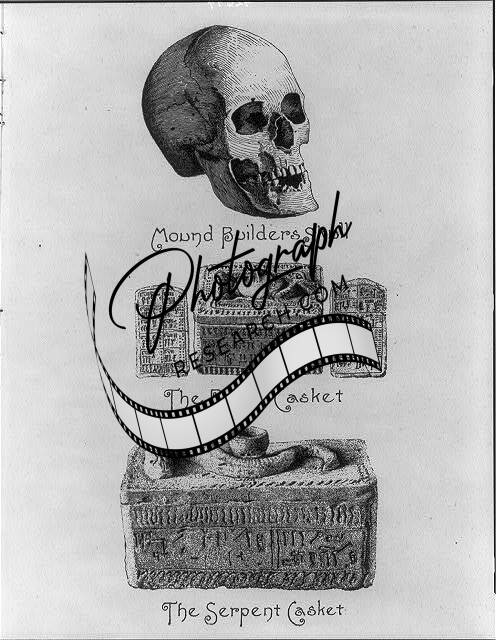 Mound Builders
Photograph
RESEARCH.COM
The Casket
The Serpent Casket